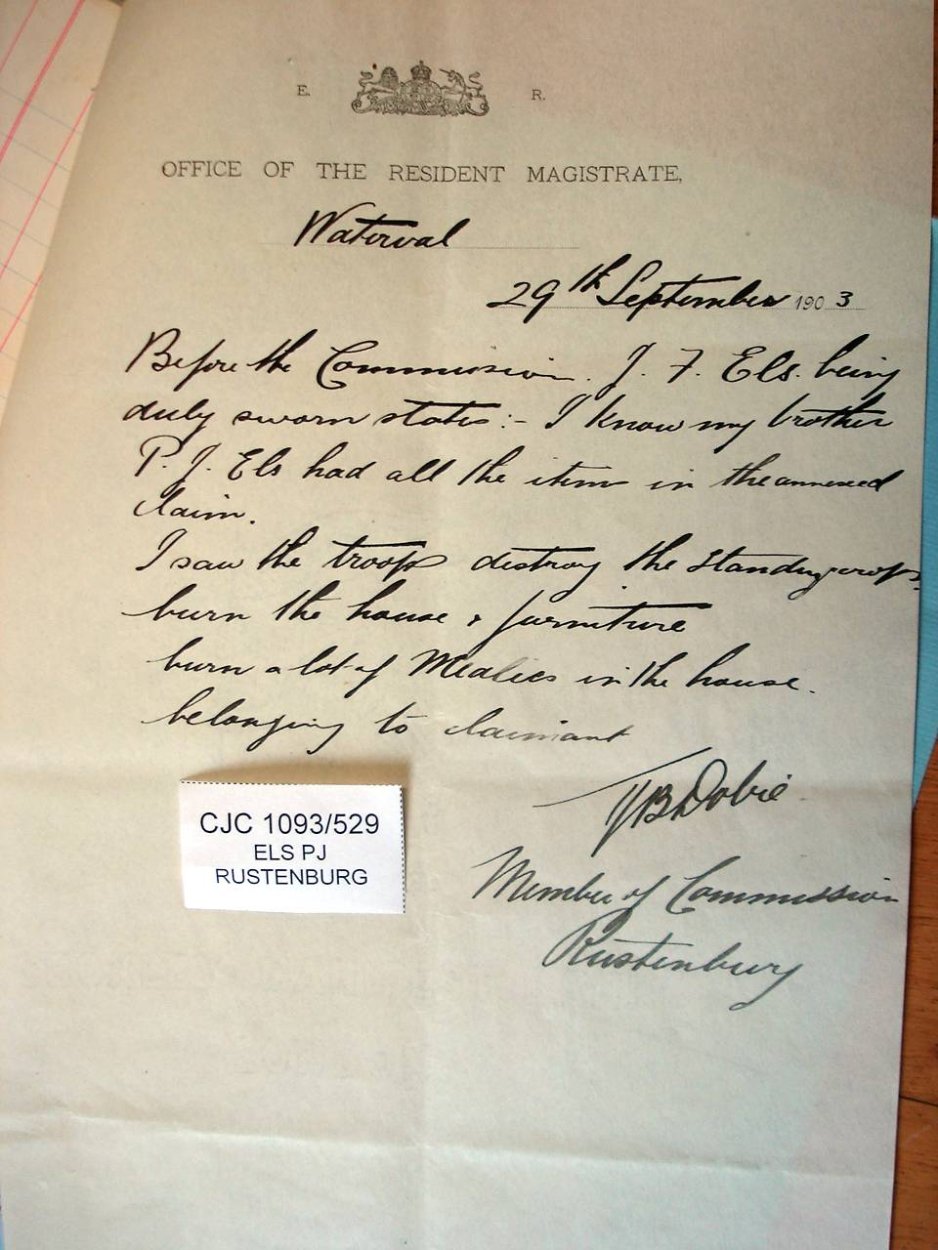 E. R.
OFFICE OF THE RESIDENT MAGISTRATE,
Waterval
29th September 1903
Before the Commission. J. F. Els. being
duly sworn states:- I know my brother
P. J. Els had all the items in the annexed
claim.
I saw the troops destroy the standing crops.
burn the house & furniture
burn a lot of Mealies in the house.
belonging to claimant
Dobie
Member of Commission
Rustenburg
CJC 1093/529
ELS PJ
RUSTENBURG